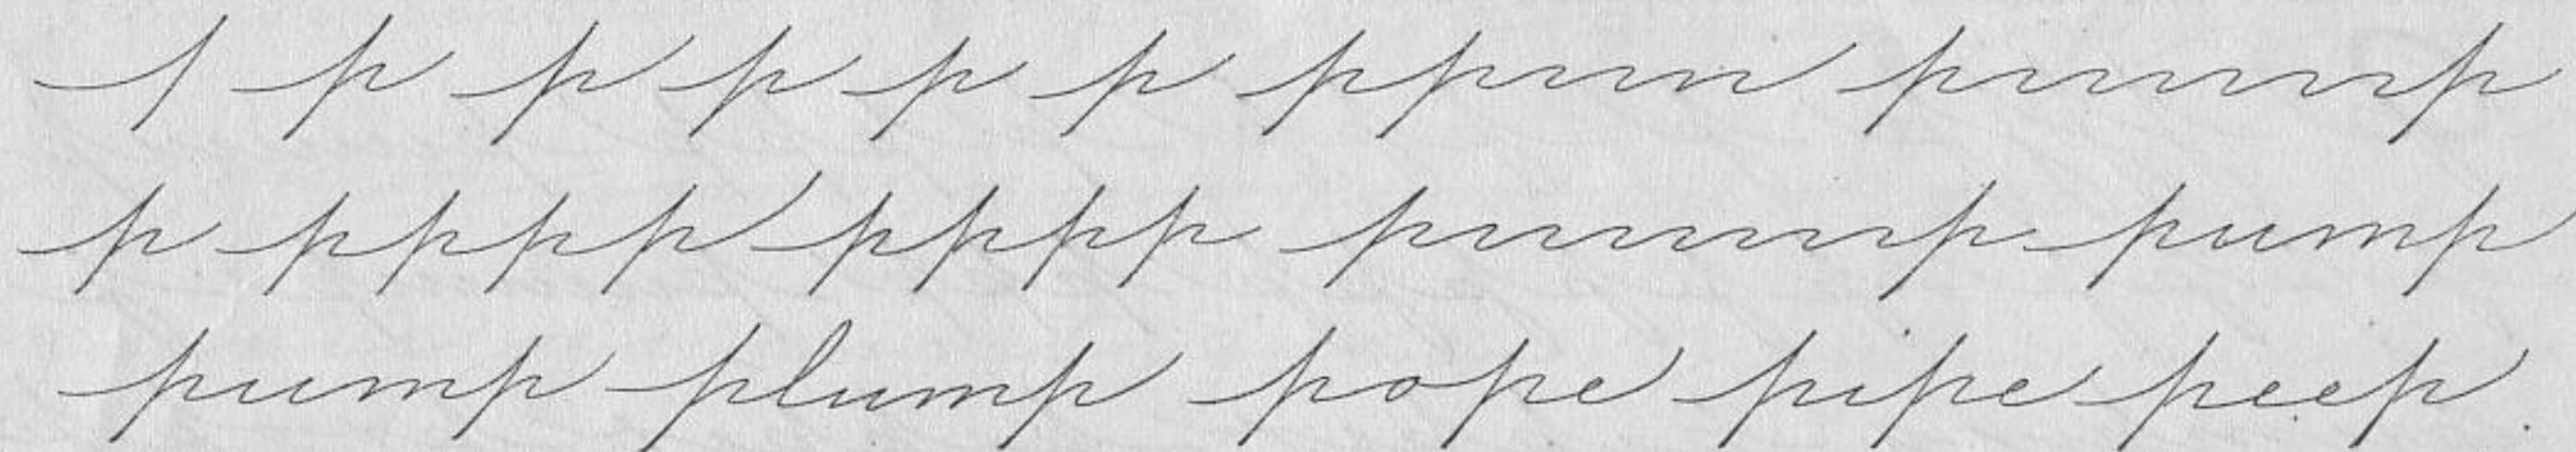 p p p p p p ppum pump
p pppp pppp pump pump
pump plump pope pipe peep